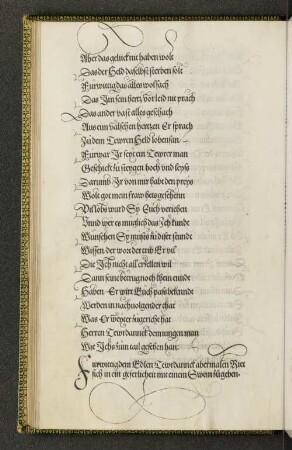 Aber das geluck nit haben wolt
Das der Held daselbst sterben solt
Furwittig das alles wol sach
Das Im sein hertz vor leid nit prach
Das ander vast alles geschach
Aus eim valschen hertzen Er sprach
Zu dem Tewren Held lobensan
Furwar Ir seyt ein Tewrer man
Geschickt zu steygen hoch und
Darumb Ir von mir habt den preys
Wolt got mein fraw hets gesehenn
Vil lobs wurd Sy Euch veriehen
Unnd wer es muglich das Ich kundt
Wunschen Sy muss zu diser stundt
Wissen der wort der
Die Ich nicht all erzelen wil
Dann seine betrug noch
Haben Er wirt Euch pass bekandt
Werden in nachvolgender that
Was Er weyter zugericht hat
Herren Tewrdannck dem jungen man
Wie Ichs zum tail gesehen han
Furwittig dem Edlen Tewrdannck abermalen Riet
sich in ein geferlichen mit einem Swein zugeben.